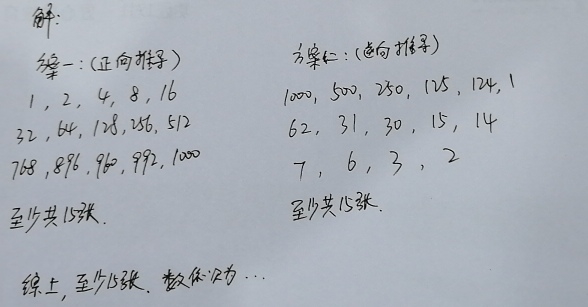 解:
方案一:(正向推导)
1, 2, 4, 8, 16
32, 64, 128, 256, 512
768, 896, 960, 992, 1000
至少共15张.
方案二:(逆向推导)
1000, 500, 250, 125, 124, 1
62, 31, 30, 15, 14
7, 6, 3, 2
至少共15张.
综上, 至少15张. 数依次为...